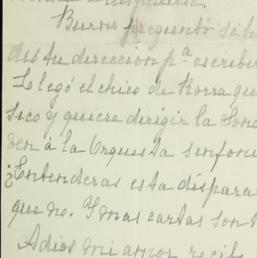 Burns preguntó si h
dió tu direccion pª escribir
Llegó el chico de Korra que
sico y quiere dirigir la Son
den á la Orquesta sinfon
¿Entenderas esta dispara
que no. Y mas cartas son t
Adios mi amor recib